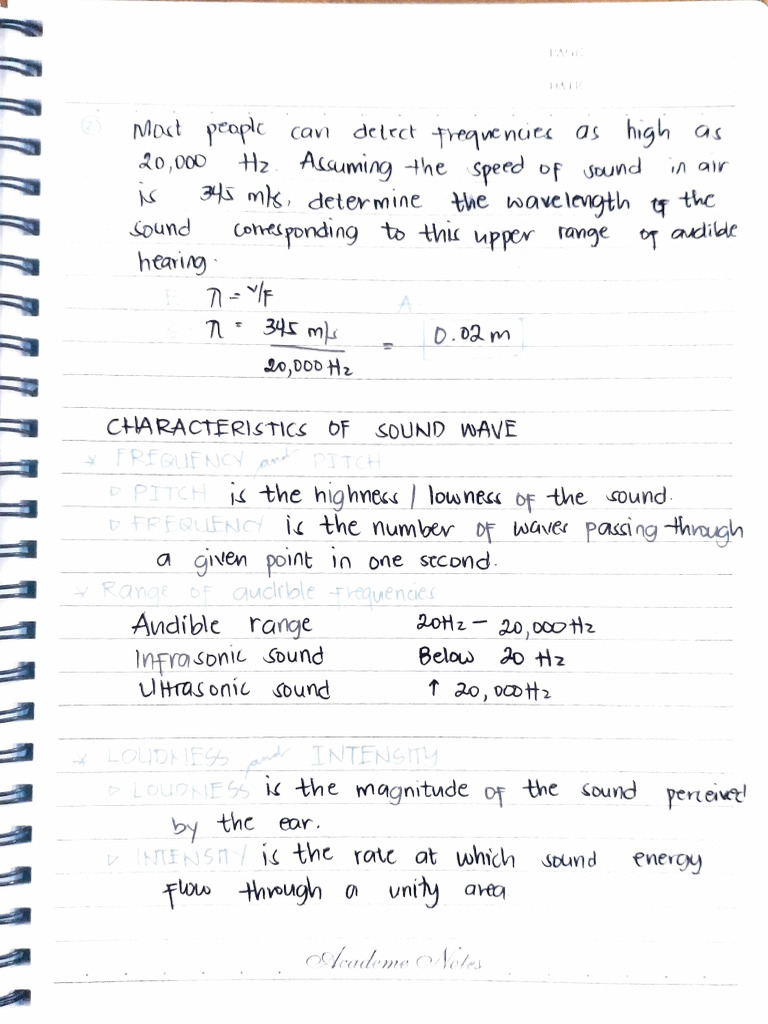 PAGE:
DATE:
② Most people can detect frequencies as high as
20,000 Hz. Assuming the speed of sound in air
is 345 m/s, determine the wavelength of the
sound corresponding to this upper range of audible
hearing.
π = v/F
π = 345 m/s / 20,000 Hz = 0.02 m
A
CHARACTERISTICS OF SOUND WAVE
* FREQUENCY and PITCH
▷ PITCH is the highness / lowness of the sound.
▷ FREQUENCY is the number of waves passing through
a given point in one second.
* Range of audible frequencies
Audible range 20Hz - 20,000Hz
Infrasonic sound Below 20 Hz
Ultrasonic sound ↑ 20,000Hz
* LOUDNESS and INTENSITY
▷ LOUDNESS is the magnitude of the sound perceived
by the ear.
▷ INTENSITY is the rate at which sound energy
flow through a unity area
Academe Notes